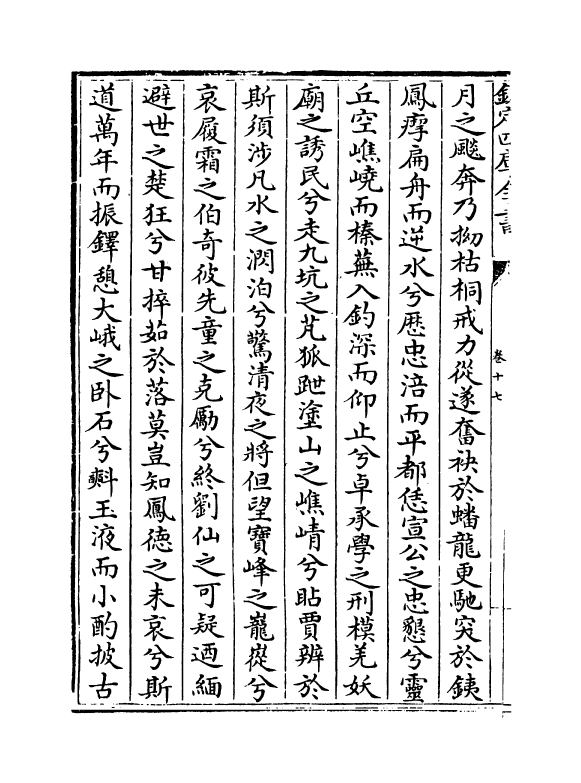 欽定四庫全書
卷十七
月之颷奔乃拗枯桐戒力從遂奮袂於蟠龍更馳突於銕
鳳㾕扁舟而逆水兮歴忠涪而平都恁宣公之忠懇兮靈
丘空嶕嶢而榛蕪入鈎深而仰止兮卓承學之刑模羌妖
廟之誘民兮走九坑之芃狐跐塗山之嶕崝兮貼賈辨於
斯須涉凡水之濶泊兮驚清夜之將但望寶峰之巃嵸兮
哀履霜之伯奇彼先童之克勵兮終劉仙之可疑迺緬
避世之楚狂兮甘捽茹於落莫豈知鳳德之未哀兮斯
道萬年而振鐸憩大峨之卧石兮㪺玉液而小酌披古